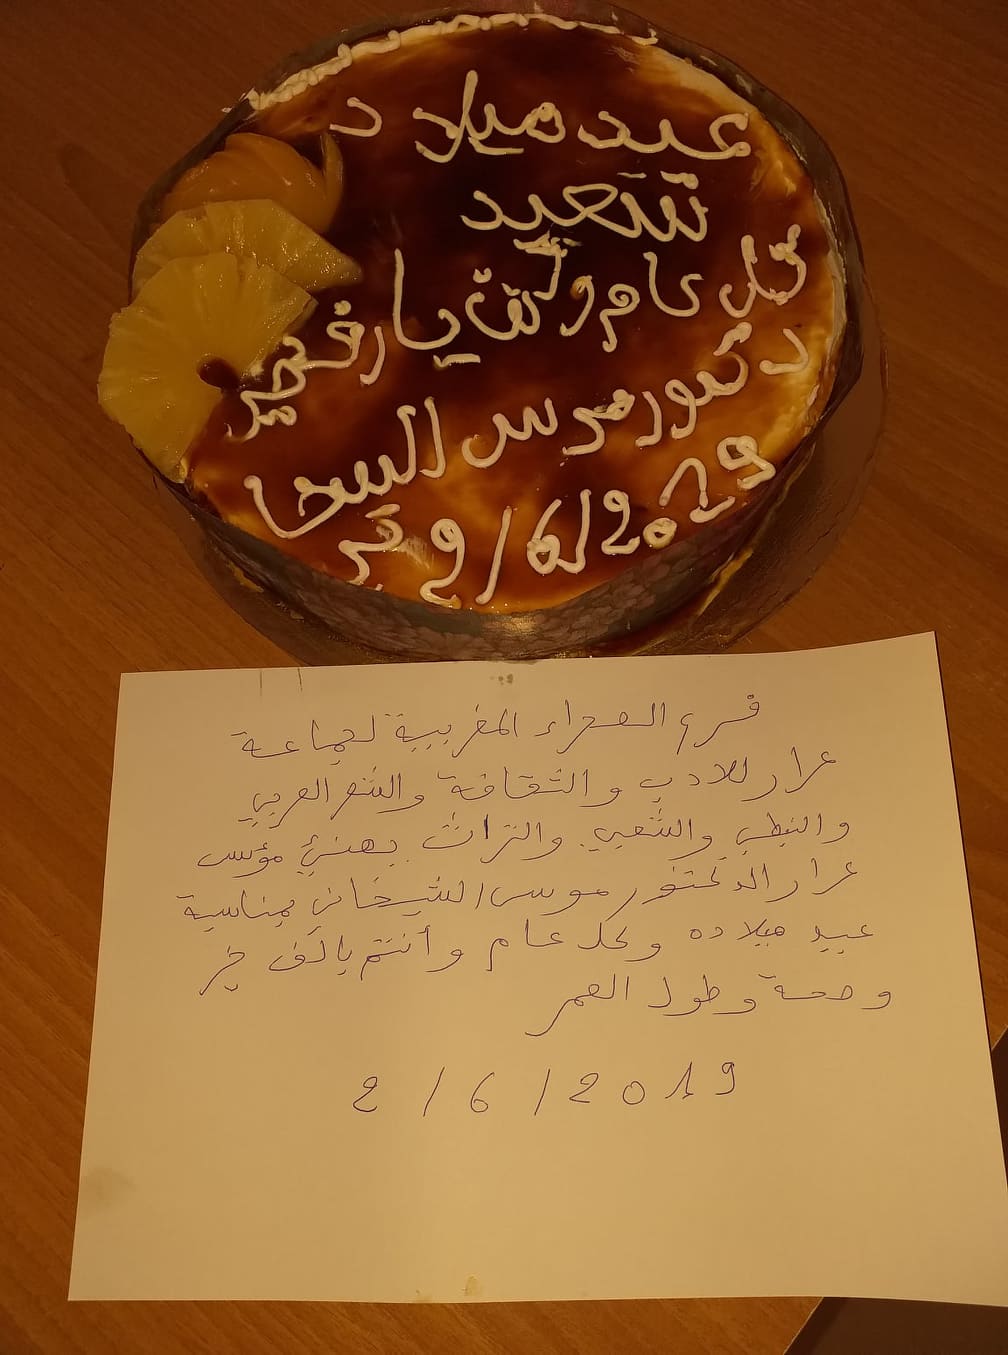 عيد ميلاد
سعيد
كل عام وألف يار خير
دكتور موسى الشيخا
ني 2/6/2019
فرع الصحراء المغربية لجماعة
عرار للادب والثقافة والشعر العربي
والنبطي والشعبي والتراث يهنئ مؤسس
عرار الدكتور موسى الشيخاني بمناسبة
عيد ميلاده وكل عام وأنتم بالف خير
وصحة وطول العمر
2/6/2019